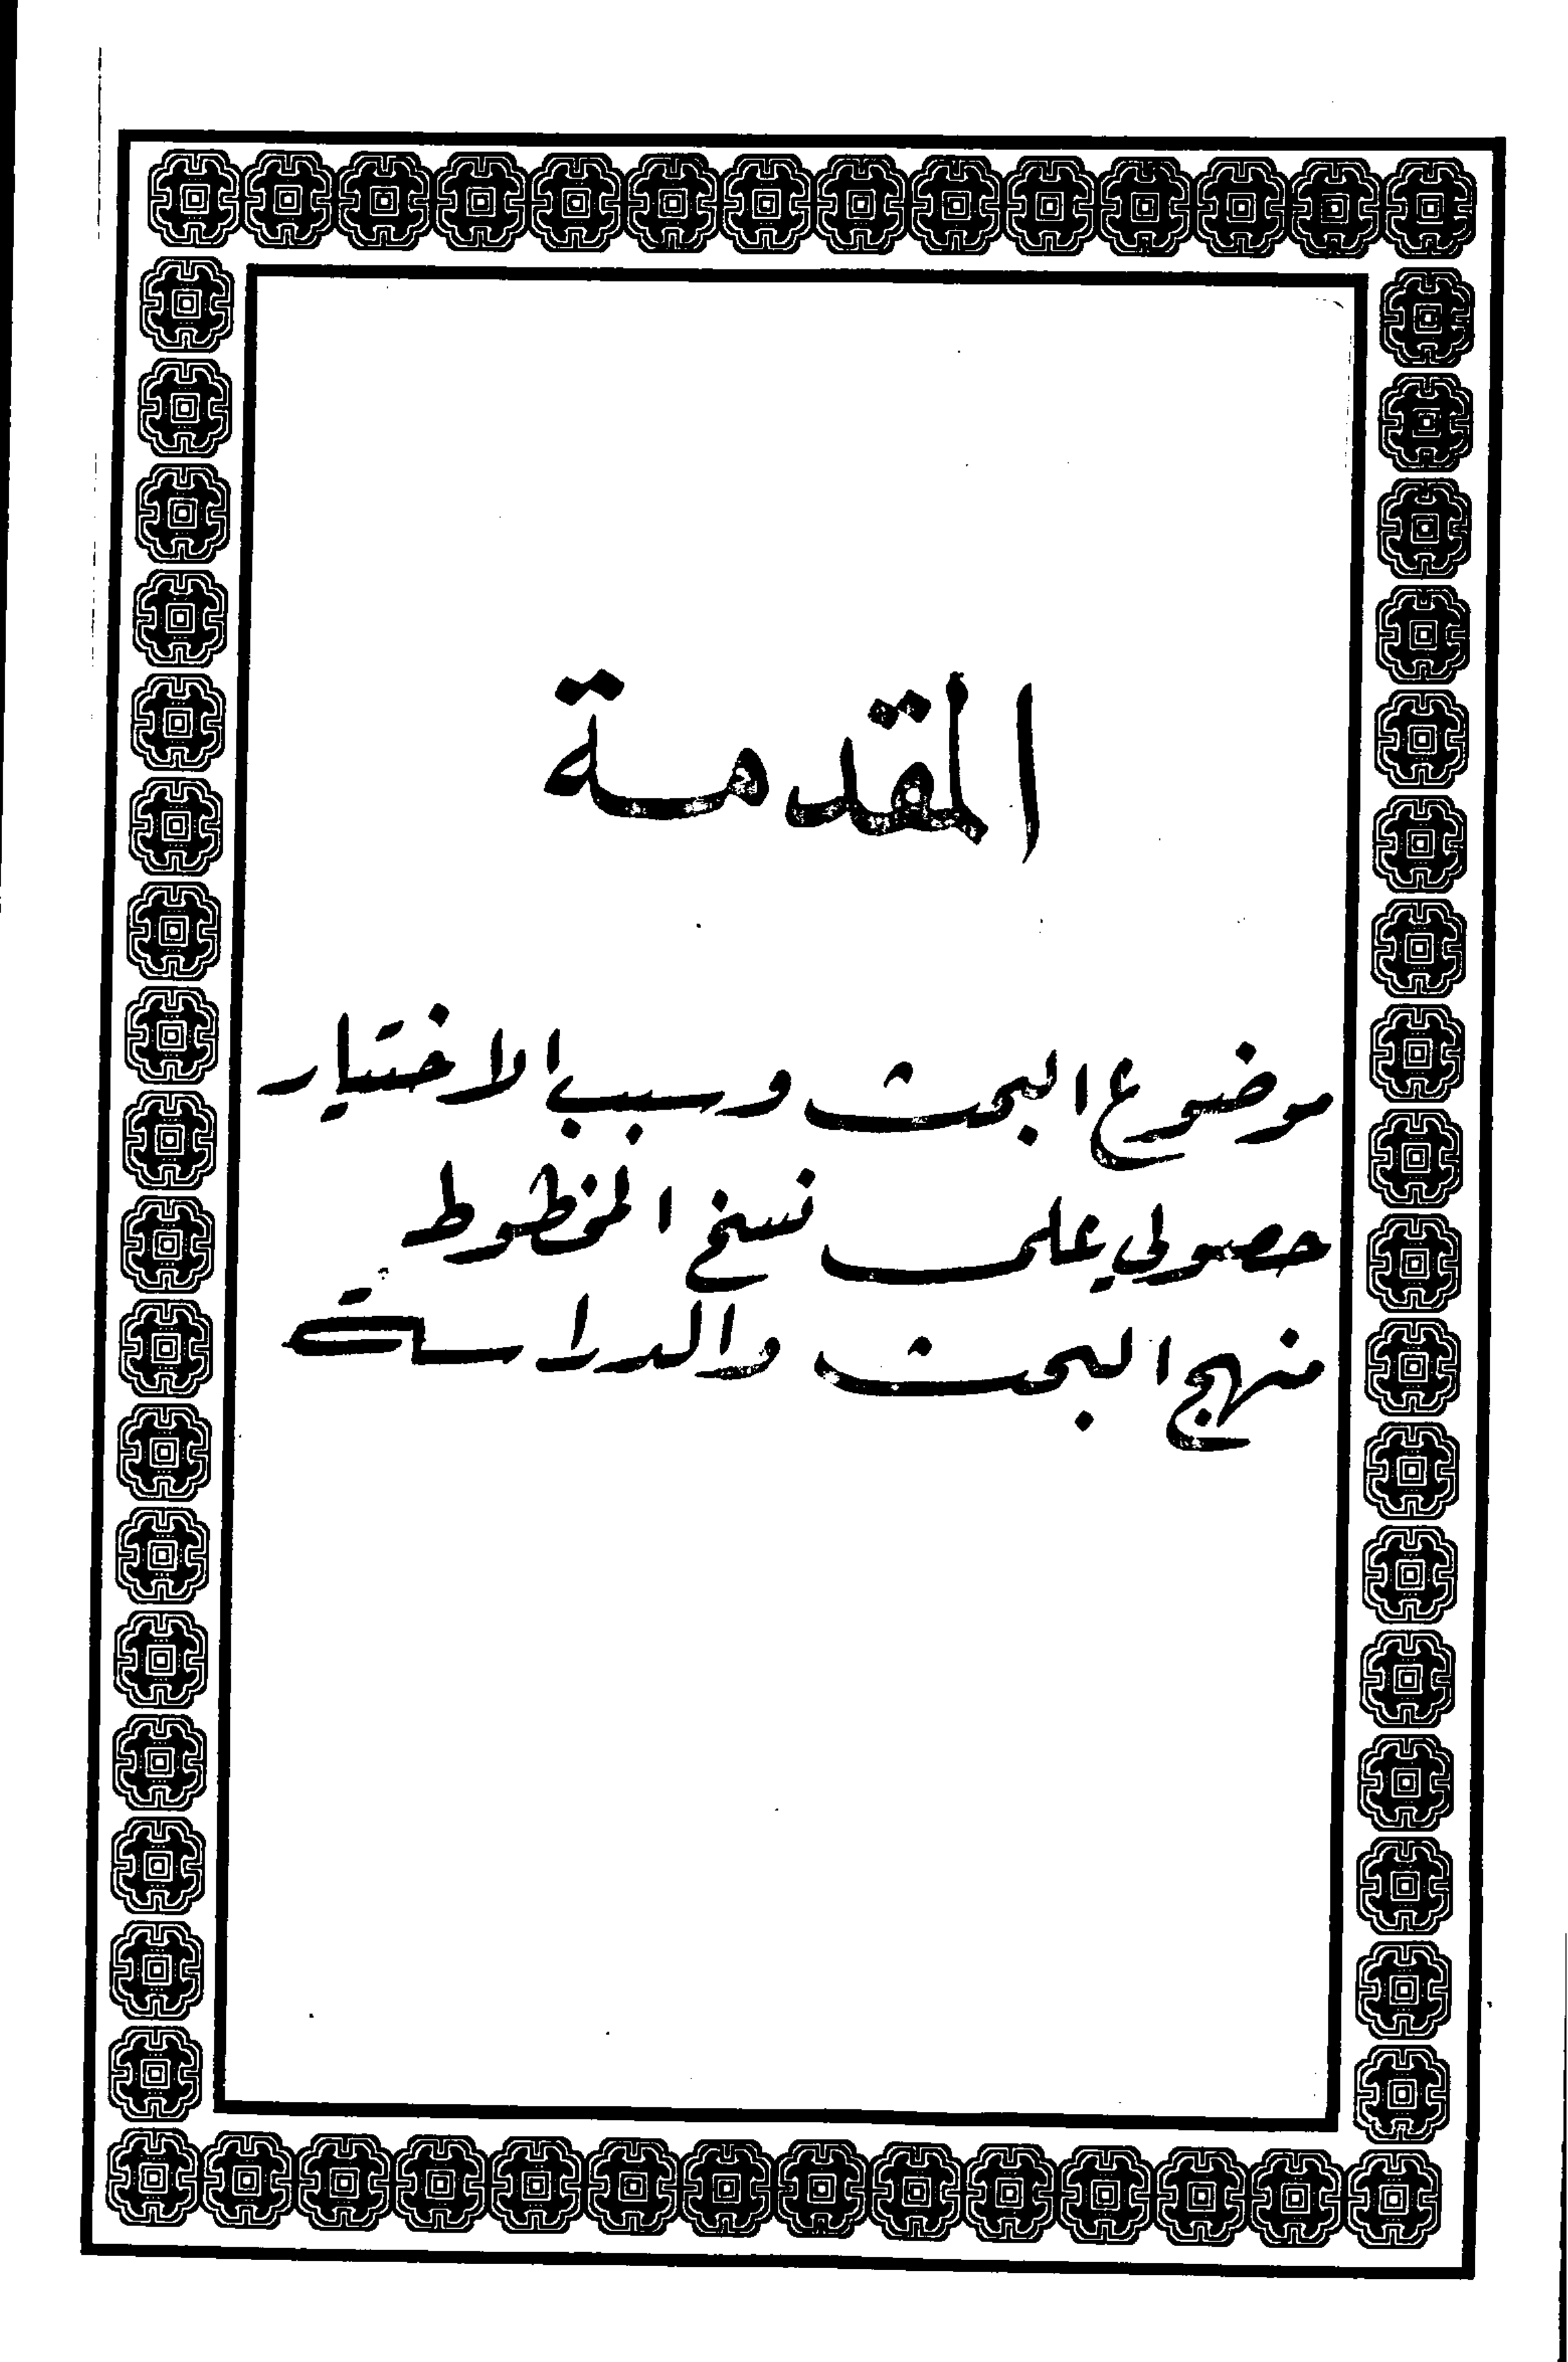 المقدمة
موضوع البحث وسبب الاختيار
حصولي على نسخ المخطوط
منهج البحث والدراسة